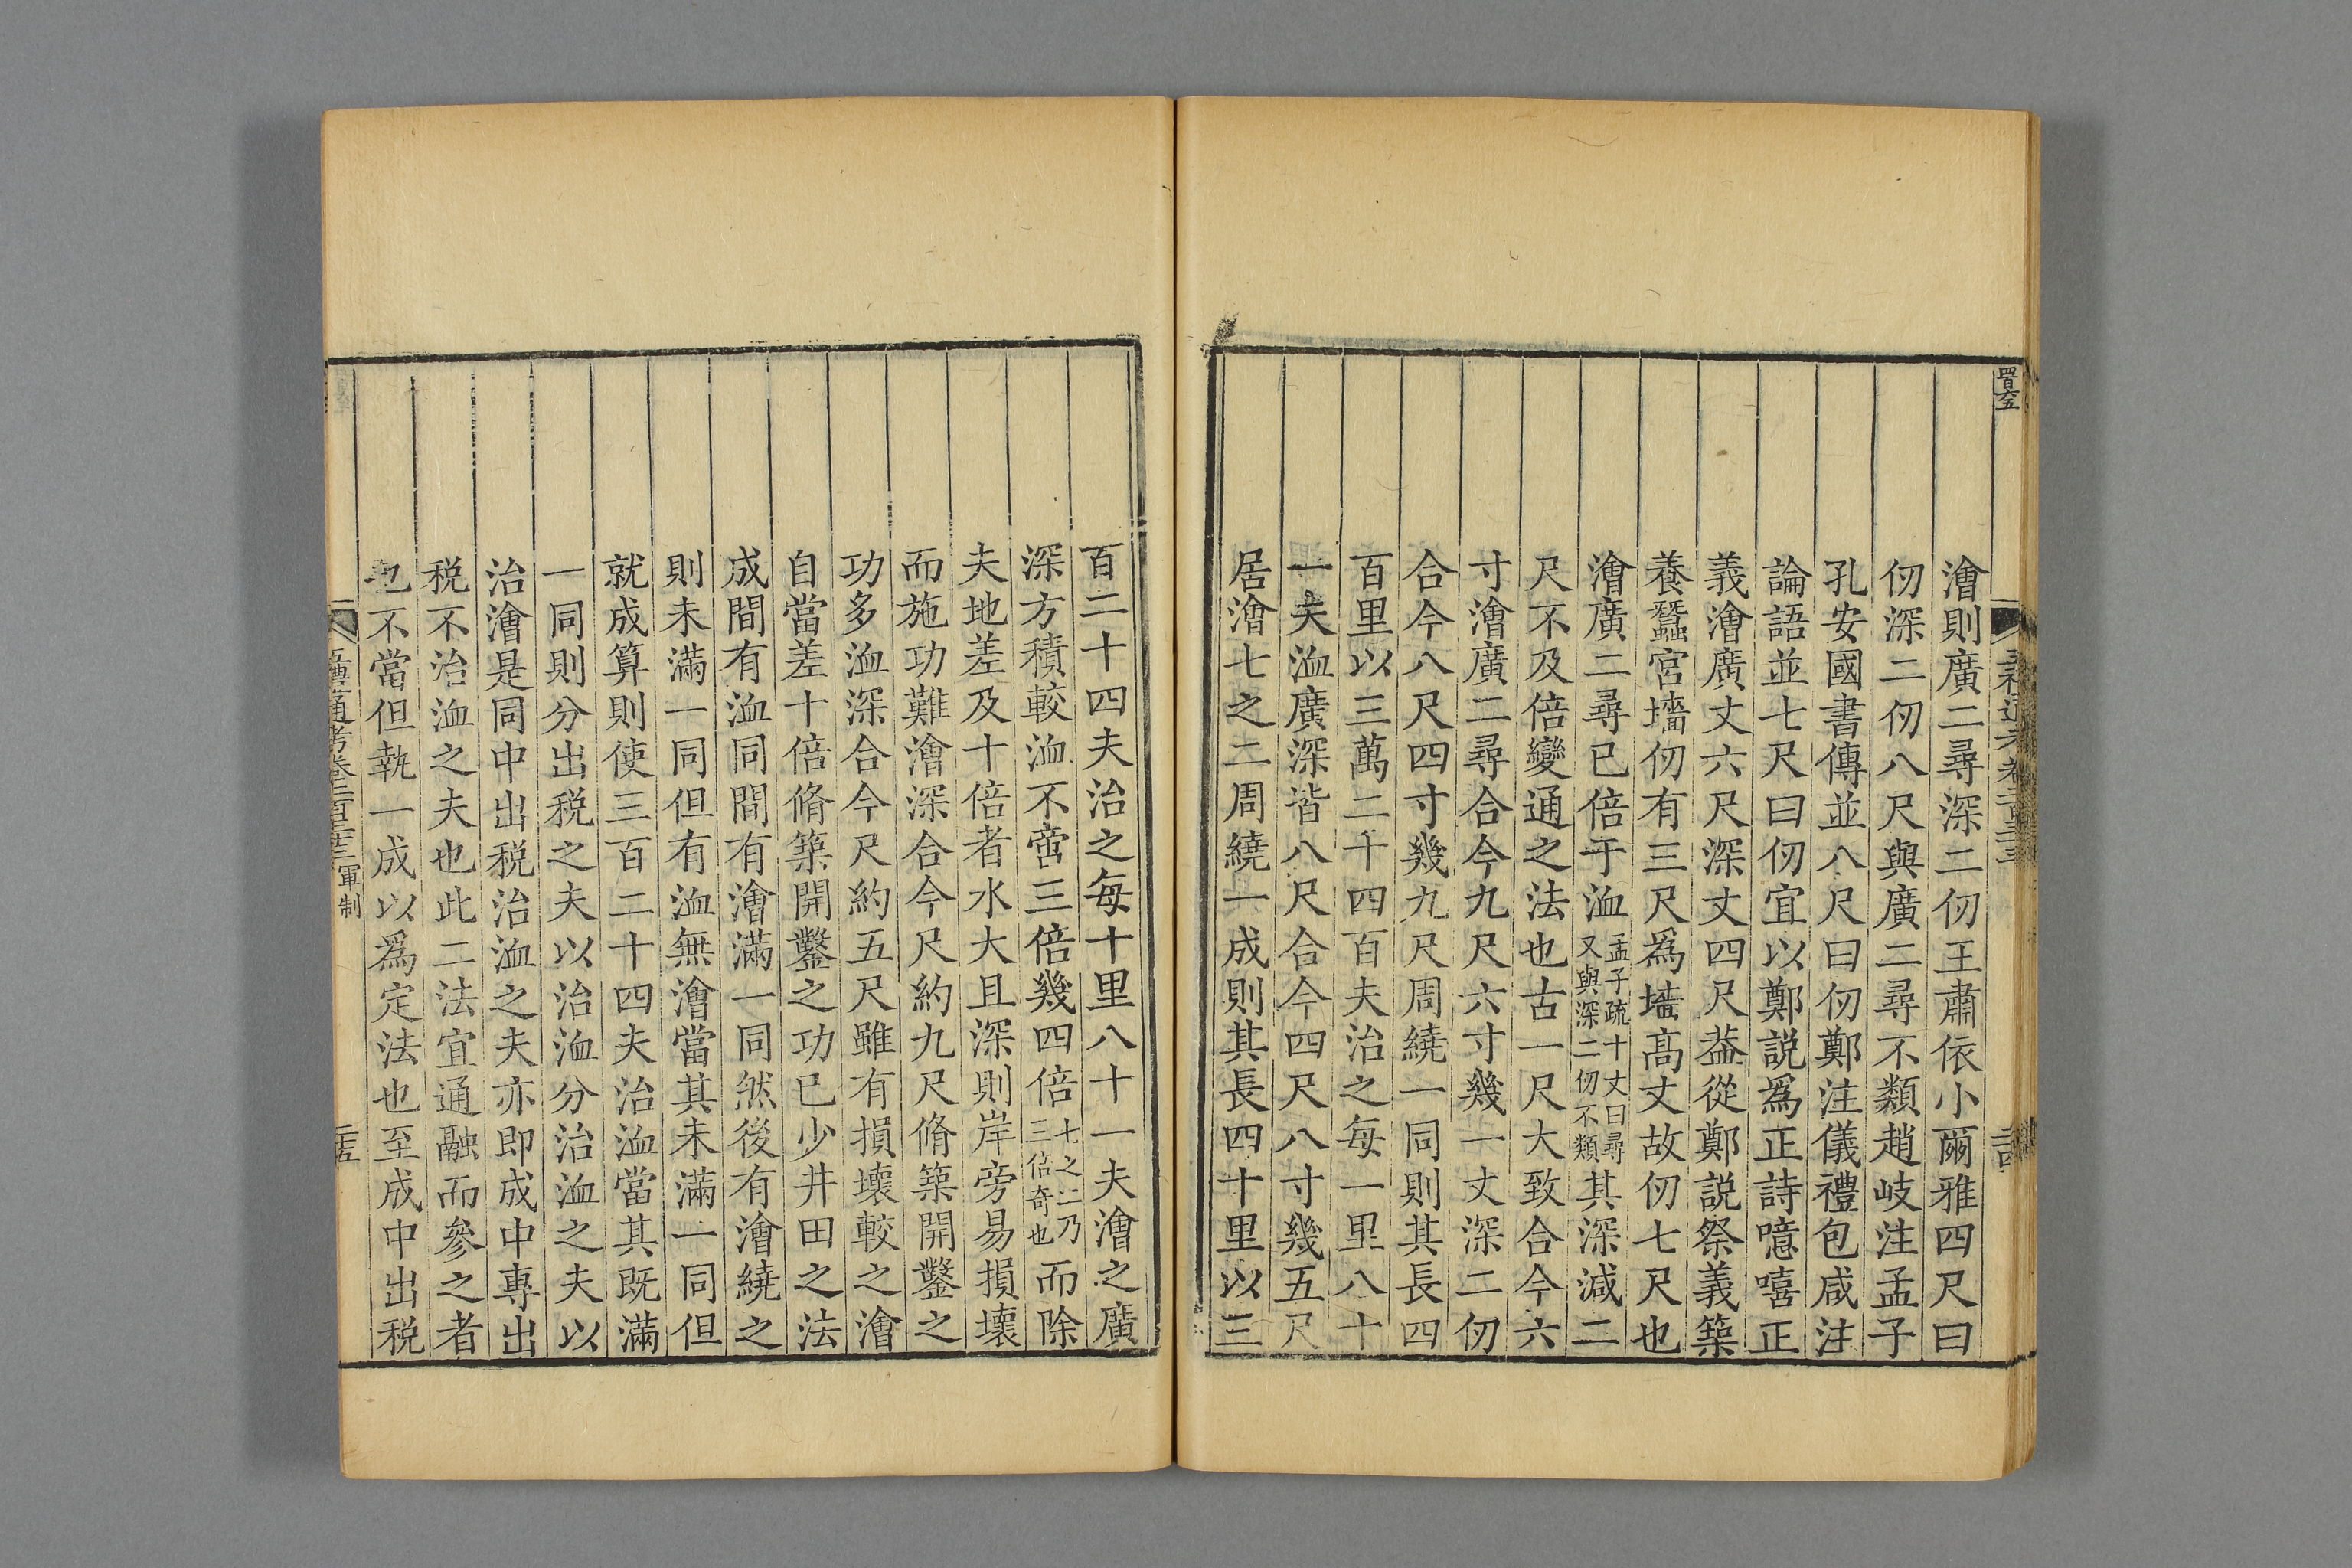 澮則廣二尋深二仞王肅依小爾雅四尺曰
仞深二仞八尺與廣二尋不類趙岐注孟子
孔安國書傳並八尺曰仞鄭注儀禮包咸注
論語並七尺曰仞宜以鄭説爲正詩噫嘻正
義澮廣丈六尺深丈四尺葢從鄭説祭義築
養蠶宮墻仞有三尺爲墻高丈故仞七尺也
澮廣二尋已倍于洫孟子疏十丈曰尋又與深二仞不類其深減二
尺不及倍變通之法也古一尺大致合今六
寸澮廣二尋合今九尺六寸幾一丈深二仞
合今八尺四寸幾九尺周繞一同則其長四
百里以三萬二千四百夫治之每一里八十
一夫洫廣深皆八尺合今四尺八寸幾五尺
居澮七之二周繞一成則其長四十里以三
百二十四夫治之每十里八十一夫澮之廣
深方積較洫不啻三倍幾四倍七之二乃三倍奇也而除
夫地差及十倍者水大且深則岸旁易損壞
而施功難澮深合今尺約九尺脩築開鑿之
功多洫深合今尺約五尺雖有損壞較之澮
自當差十倍脩築開鑿之功已少井田之法
成間有洫同間有澮滿一同然後有澮繞之
則未滿一同但有洫無澮當其未滿一同但
就成算則使三百二十四夫治洫當其既滿
一同則分出税之夫以治洫分治洫之夫以
治澮是同中出税治洫之夫亦即成中專出
税不治洫之夫也此二法宜通融而參之者
也不當但執一成以爲定法也至成中出税
禮通考卷二百三十三 軍制
二十五